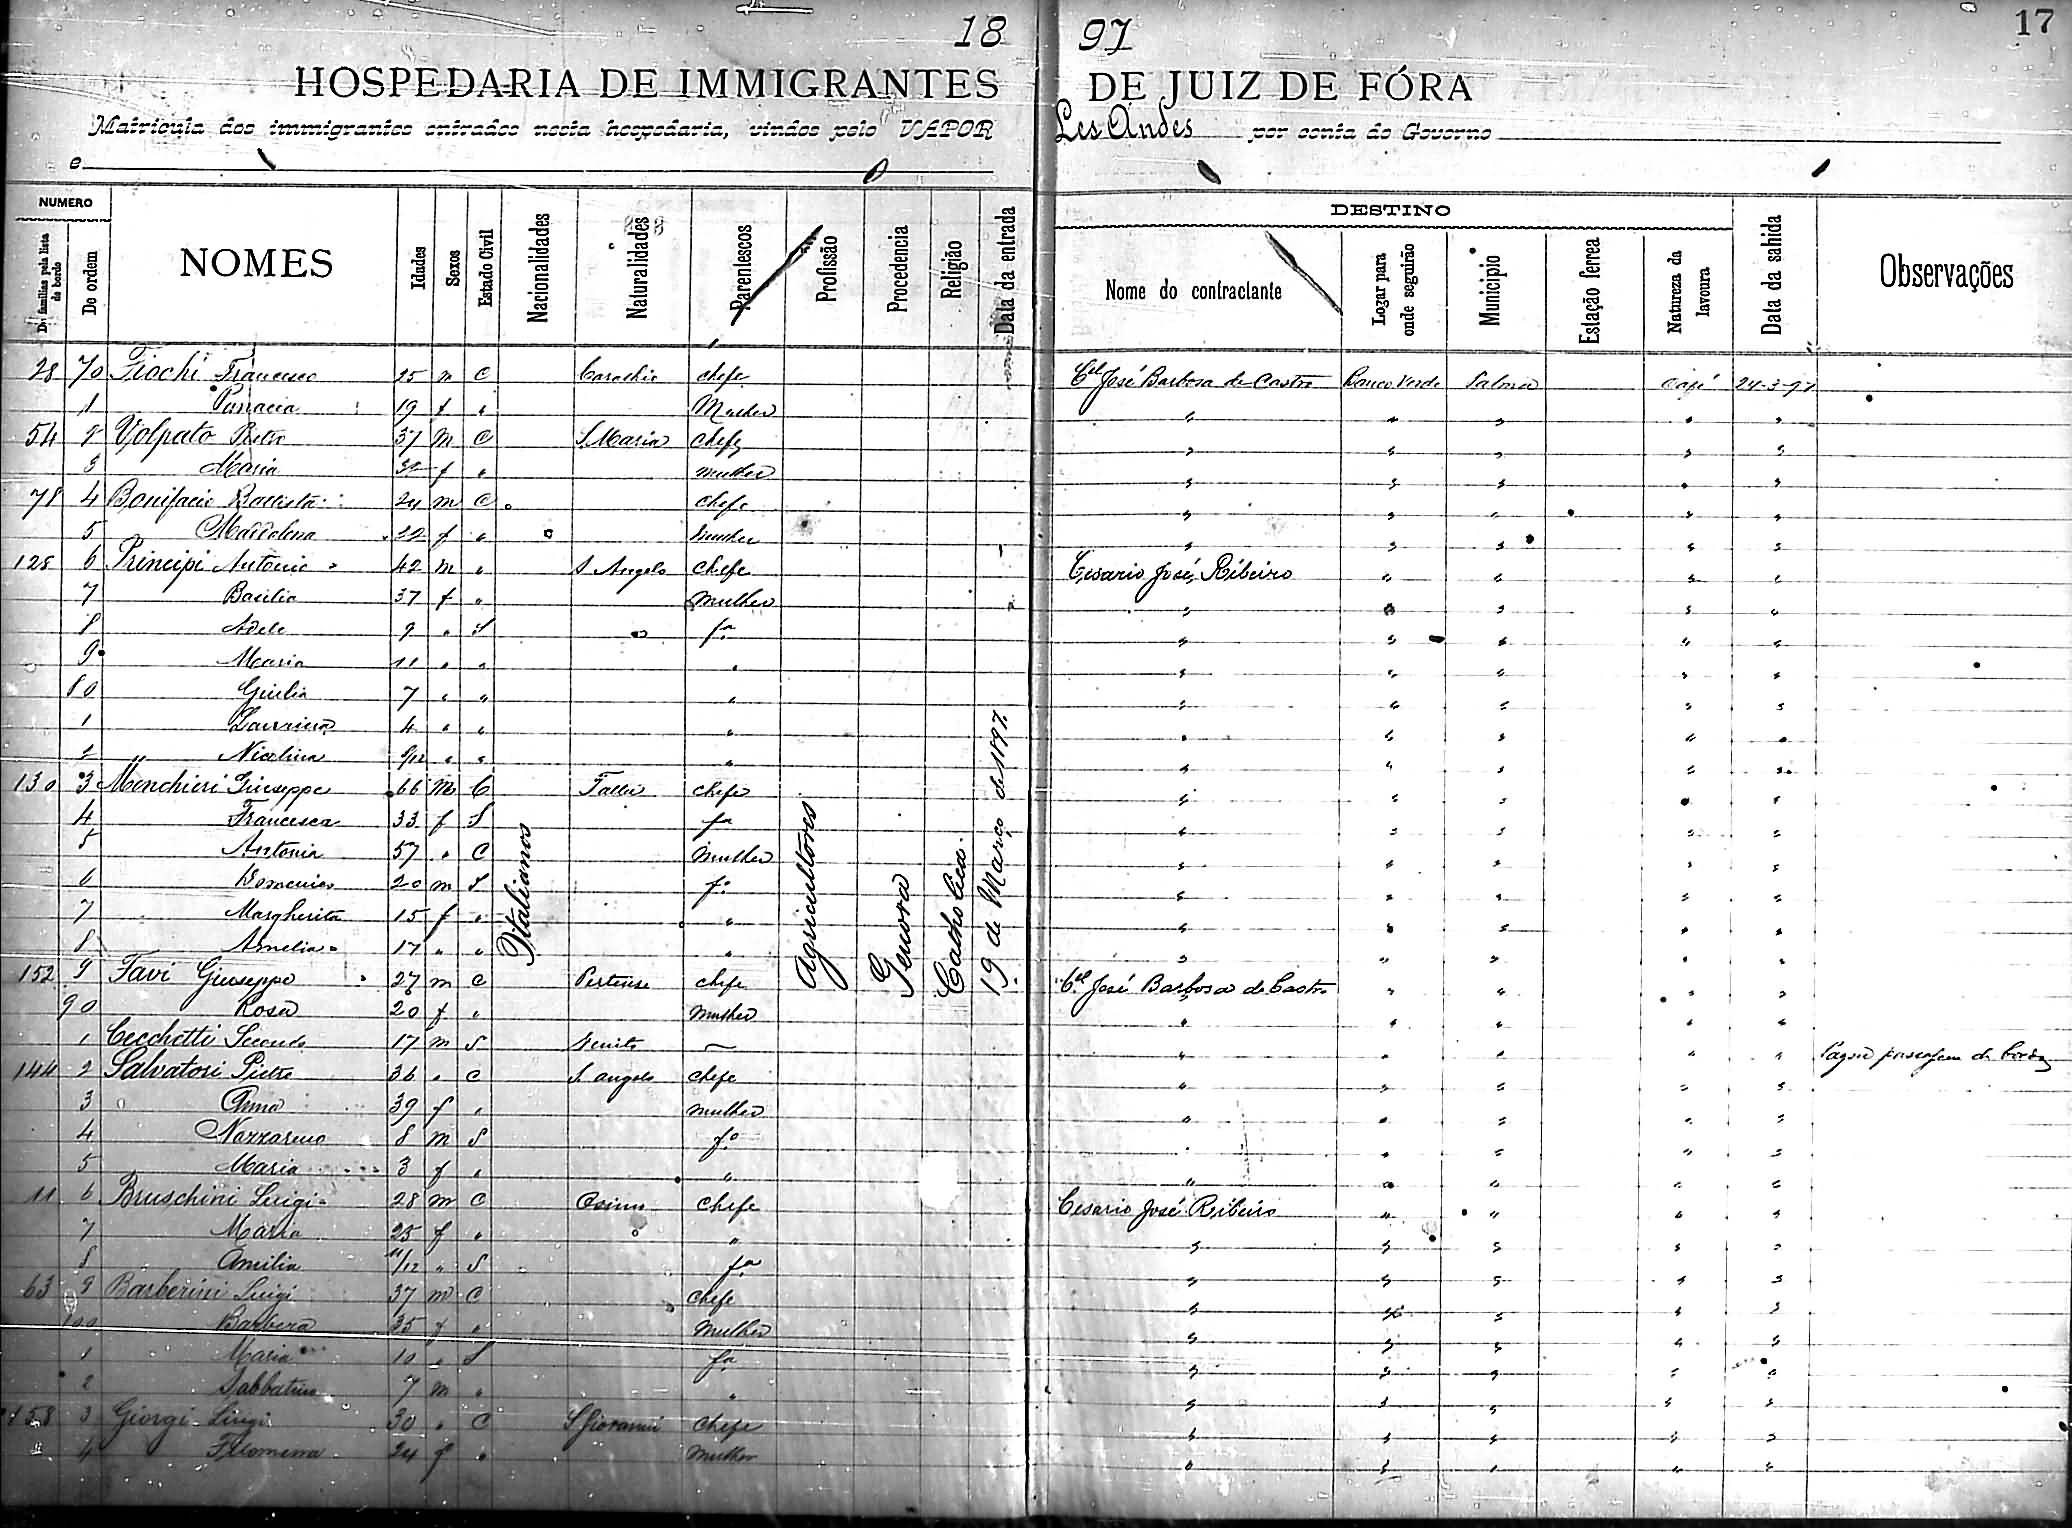 17
18 97
HOSPEDARIA DE IMMIGRANTES DE JUIZ DE FÓRA
Matricula dos immigrantes entrados nesta hospedaria, vindos pelo VAPOR Les Andes por conta do Governo
e
NUMERO
De familias pela lista de bordo
De ordem
NOMES
Idades
Sexos
Estado Civil
Nacionalidades
Naturalidades
Parentescos
Profissão
Procedencia
Religião
Data da entrada
DESTINO
Nome do contractante
Logar para onde seguirão
Municipio
Estação ferrea
Natureza da lavoura
Data da sahida
Observações
28 70 Fiochi Francesco 25 m C chefe Cel José Barbosa de Castro Pouco Verde Palma Café 24-3-97
1 19 f " Mulher " " " " "
54 2 Volpato Pietro 37 m C S Maria chefe " " " " "
3 Maria 32 f " mulher " " " " "
78 4 Bonifacio Battista 24 m C chefe " " " " "
5 Maddalena 22 f " mulher " " " " "
128 6 Principi Antonio 42 m " S Angelo chefe Cesario José Ribeiro " " " "
7 Basilia 37 f " mulher " " " " "
8 Adele 9 " S fa " " " " "
9 Maria 11 " " " " " " " "
80 Giulia 7 " " " " " " " "
1 4 " " " " " " " "
2 Nicolina 9/12 " " " " " " " "
130 3 Menchieri Giuseppe 66 m C chefe " " " " "
4 Francesca 33 f S fa " " " " "
5 Antonia 57 " C mulher " " " " "
6 Domenico 20 m S fo " " " " "
7 Margherita 15 f " " " " " " "
8 Amelia 17 " " " " " " " "
152 9 Favi Giuseppe 27 m C chefe Cel José Barbosa de Castro " " " "
90 Rosa 20 f " mulher " " " " "
1 Cecchetti Secondo 17 m S — " " " " " Pagou passagem de bordo
144 2 Salvatori Pietro 36 " C S. angelo chefe " " " " "
3 Anna 39 f " mulher " " " " "
4 Nazzareno 8 m S fo " " " " "
5 Maria 3 f " " " " " " "
11 6 Bruschini Luigi 28 m C Osimo chefe Cesario José Ribeiro " " " "
7 Maria 25 f " " " " " " "
8 Amilia 11/12 " S fa " " " " "
63 9 Barberini Luigi 37 m C chefe " " " " "
100 Barbera 35 f " mulher " " " " "
1 Maria 10 " S fa " " " " "
2 Sabbatino 7 m " " " " " " "
158 3 Giorgi Luigi 30 " C S Giovanni chefe " " " " "
4 Filomena 24 f " mulher " " " " "
Italianos
Agricultores
Genova
Catholica
19 de Março de 1897